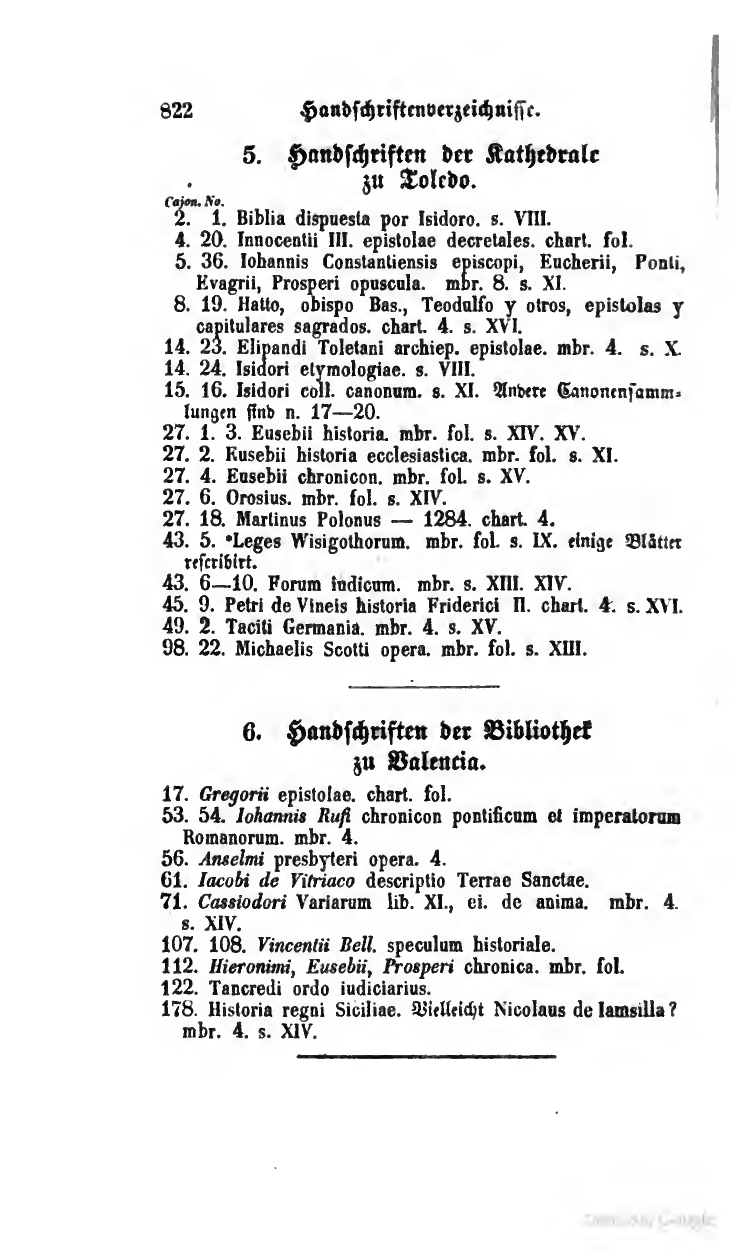 822 Handschriftenverzeichnisse.
5. Handschriften der Kathedrale
zu Toledo.
Cajon. No.
2. 1. Biblia dispuesta por Isidoro. s. VIII.
4. 20. Innocentii III. epistolae decretales. chart. fol.
5. 36. Iohannis Constantiensis episcopi, Eucherii, Ponti,
Evagrii, Prosperi opuscula. mbr. 8. s. XI.
8. 19. Hatto, obispo Bas., Teodulfo y otros, epistolas y
capitulares sagrados. chart. 4. s. XVI.
14. 23. Elipandi Toletani archiep. epistolae. mbr. 4. s. X.
14. 24. Isidori etymologiae. s. VIII.
15. 16. Isidori coll. canonum. s. XI. Andere Canonensamm-
lungen sind n. 17—20.
27. 1. 3. Eusebii historia. mbr. fol. s. XIV. XV.
27. 2. Eusebii historia ecclesiastica. mbr. fol. s. XI.
27. 4. Eusebii chronicon. mbr. fol. s. XV.
27. 6. Orosius. mbr. fol. s. XIV.
27. 18. Martinus Polonus — 1284. chart. 4.
43. 5. *Leges Wisigothorum. mbr. fol. s. IX. einige Blätter
rescribirt.
43. 6—10. Forum iudicum. mbr. s. XIII. XIV.
45. 9. Petri de Vineis historia Friderici II. chart. 4. s. XVI.
49. 2. Taciti Germania. mbr. 4. s. XV.
98. 22. Michaelis Scotti opera. mbr. fol. s. XIII.
6. Handschriften der Bibliothek
zu Valencia.
17. Gregorii epistolae. chart. fol.
53. 54. Iohannis Rufi chronicon pontificum et imperatorum
Romanorum. mbr. 4.
56. Anselmi presbyteri opera. 4.
61. Iacobi de Vitriaco descriptio Terrae Sanctae.
71. Cassiodori Variarum lib. XI., ei. de anima. mbr. 4.
s. XIV.
107. 108. Vincentii Bell. speculum historiale.
112. Hieronimi, Eusebii, Prosperi chronica. mbr. fol.
122. Tancredi ordo iudiciarius.
178. Historia regni Siciliae. Vielleicht Nicolaus de Iamsilla?
mbr. 4. s. XIV.